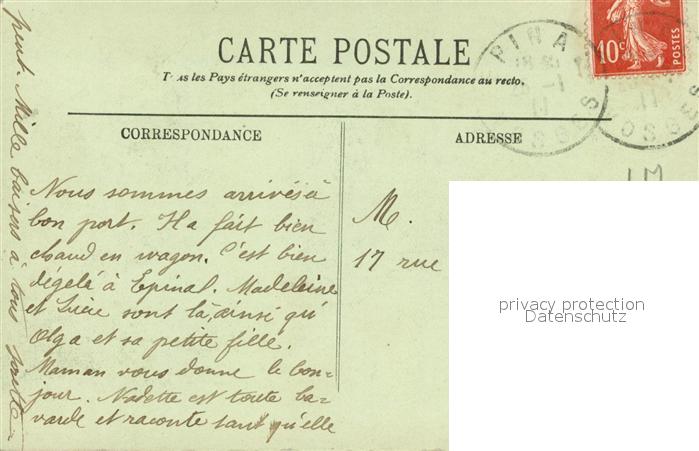 CARTE POSTALE
Tous les Pays étrangers n'acceptent pas la Correspondance au recto.
(Se renseigner à la Poste).
CORRESPONDANCE
ADRESSE
10c
POSTES
Nous sommes arrivés à
bon port. Il a fait bien
chaud en wagon. C'est bien
dégelé à Epinal. Madeleine
et Lucie sont là, ainsi qu'
Olga et sa petite fille.
Maman vous donne le bon=
jour. Nadette est toute ba=
varde et raconte tant qu'elle
peut. Mille baisers à tous
M.
17 rue
privacy protection
Datenschutz
PINA
OSGES